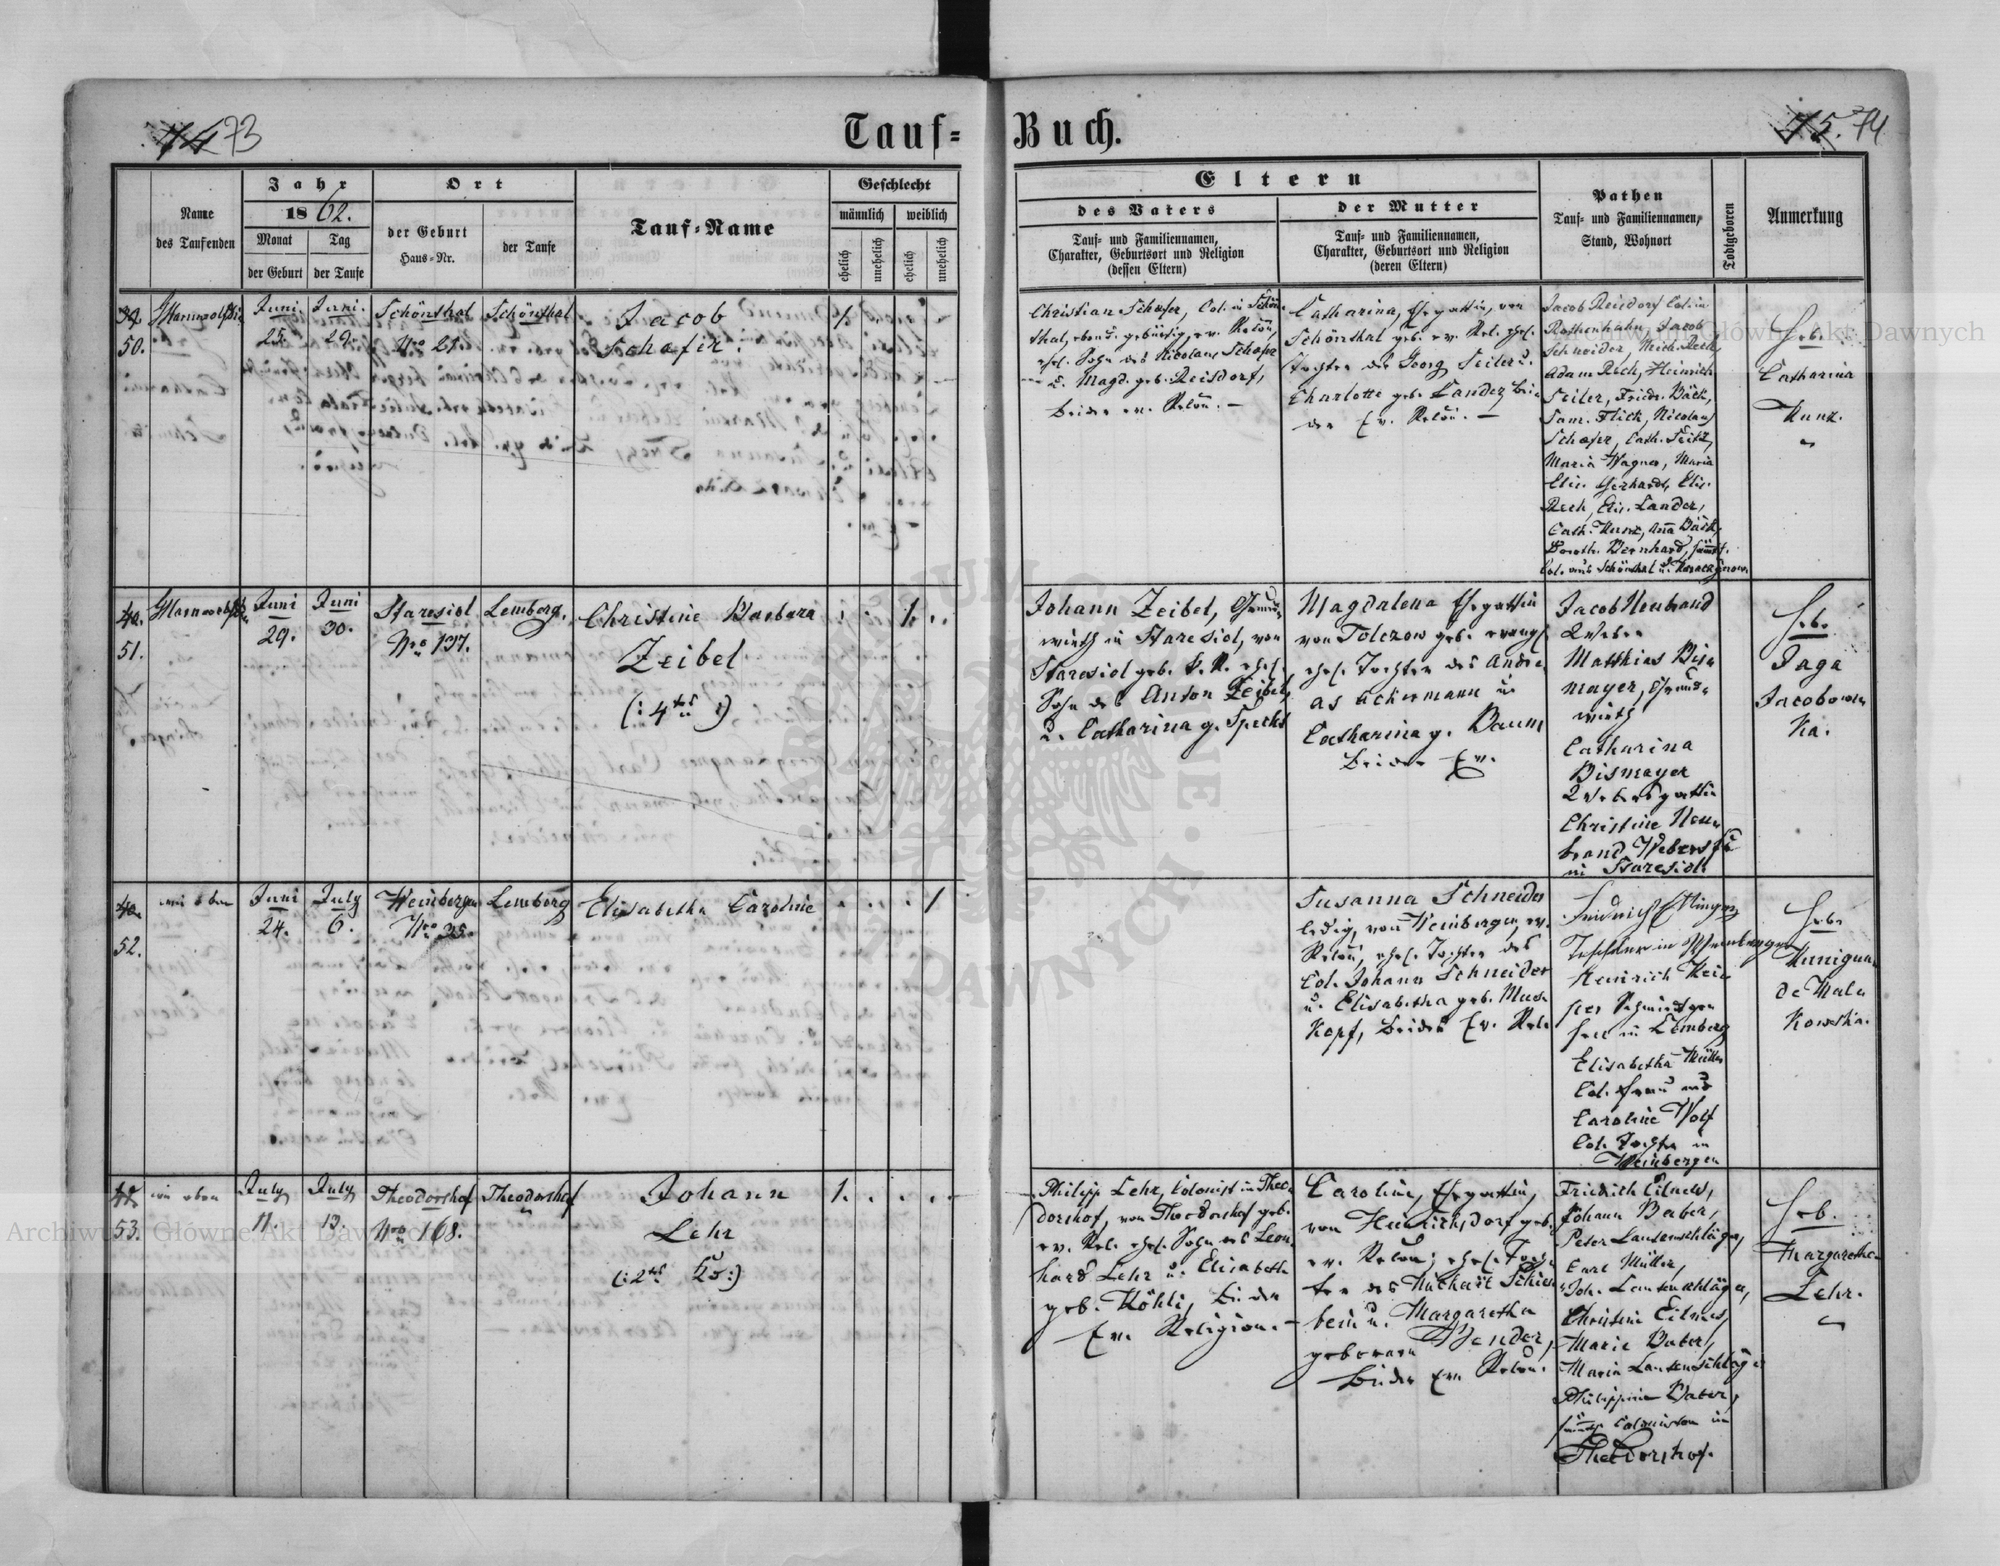 74 73
Tauf=
Buch.
75. 74
Name
des Taufenden
Jahr
1862.
Monat
der Geburt
Tag
der Taufe
Ort
der Geburt
Haus=Nr.
der Taufe
Tauf=Name
Geschlecht
männlich
weiblich
ehelich
unehelich
ehelich
unehelich
Eltern
des Vaters
Tauf= und Familiennamen,
Charakter, Geburtsort und Religion
(dessen Eltern)
der Mutter
Tauf= und Familiennamen,
Charakter, Geburtsort und Religion
(deren Eltern)
Pathen
Tauf= und Familiennamen,
Stand, Wohnort
Todtgeboren
Anmerkung
39.
50.
Juni
25.
Juni.
29.
Schönthal
Nro 21.
Schönthal
Jacob
Schafer.
1.
Christian Schafer, Col. in Schön
thal, ebend. gebürtig, ev. Relon,
ehel. Sohn des Nicolaus Schafer
u. Magd. geb. Reisdorf,
beide ev. Relon. —
Catharina, Ehegattin, von
Schönthal geb. ev. Rel. ehel.
Tochter des Georg Seiler u.
Charlotte geb. Lander bei
de Ev. Relon. —
Jacob Reisdorf Col. in
Rottenhahn, Jacob
Schneider, Mich. Rech,
Adam Rech, Heinrich
Seiler, Friedr. Bäck,
Sam. Flick, Nicolaus
Schafer, Cath. Seitz,
Maria Wagner, Maria
Elis. Gerhardt, Elis.
Rech, Elis. Lander,
Cath. Kunz, Anna Bäck,
Doroth. Bernhard, sämtl.
Col. aus Schönthal u.
Heb.
Catharina
Kunz.
40.
51.
Juni
29.
Juni
30.
Staresiol
Nro 137.
Lemberg.
Christine Barbara
Zeibel
(: 4tes :)
1.
Johann Zeibel, Grund=
wirth in Staresiol, von
Staresiol geb. ehel.
Sohn des Anton Zeibel
u. Catharina g. Specht
Magdalena Ehegattin
von Tolczow geb. evangl
ehel. Tochter des Andre
as Ackermann u
Catharina g. Baum
beide Ev.
Jacob Neubrand
Weber
Matthias Bis
mayer, Grund=
wirth
Catharina
Bismayer
Webersgattin
Christine Neu
brand Webers
in Staresiol
Heb.
Jaga
Jacobows
ka.
40.
52.
wie oben
Juni
24.
July
6.
Weinbergen
Nro 35.
Lemberg
Elisabetha Caroline
1
Susanna Schneider
ledig, von Weinbergen, ev.
Relon, ehel. Tochter des
Col. Johann Schneider
u. Elisabetha geb. Mus
kopf, beide Ev. Rel.
Friedrich Ettinger
Tischler in Weinbergen
Heinrich
in Lemberg
Elisabetha Müller
Col. Frau und
Caroline Wolf
Col. Tochter in
Weinbergen
Heb.
Kunigun
de Mala
kowska.
41.
53.
wie oben
July
11.
July
13.
Theodorshof
Nro 168.
Theodorshof
Johann
Lehr
(: 2tes :)
1.
Philipp Lehr, Colonist in Theo
dorshof, von Theodorshof geb.
ev. Rel. ehel. Sohn des Leon
hard Lehr u. Elisabeth
geb. Köhli, beide
Ev. Religion. —
Caroline, Ehegattin,
von Heinrichsdorf geb.
ev. Relon; ehel. Toch
ter des Michael Schien
bein u. Margaretha
geborenen Bender,
beide Ev. Relon.
Friedrich Eilmes,
Johann Baber,
Peter Lautenschläger,
Carl Müller,
Joh. Lautenschläger,
Christine Eilmes,
Marie Baber,
Maria Lautenschläger
Philippine Baber,
sämtl. Colonisten in
Theodorshof.
Heb.
Margaretha
Lehr.
Archiwum Główne Akt Dawnych
Archiwum Główne Akt Dawnych